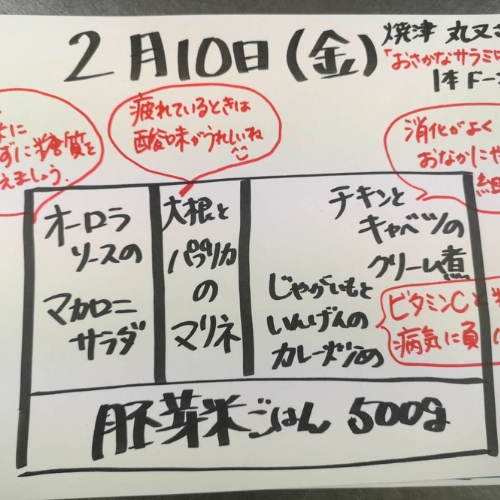 2月10日(金)
焼津 丸又さ
"おさかなサラミ
1本ドー
に
ずに糖質を
えましょう。
疲れているときは
酸味がうれしいね
消化がよく
おなかにや
オーロラ
ソースの
マカロニ
サラダ
大根と
パプリカ
の
マリネ
チキンと
キャベツの
クリーム煮
じゃがいもと
いんげんの
カレー炒め
ビタミンCと
病気に負
胚芽米ごはん 500g